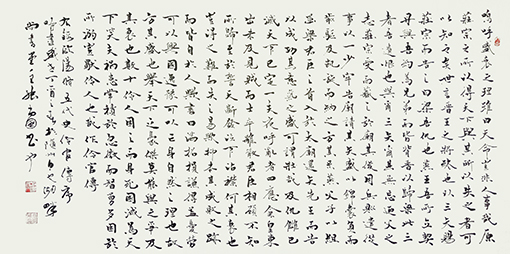 嗚呼盛衰之理雖曰天命豈非人事哉原
莊宗之所以得天下與其所以失之者可
以知之矣世言晉王之將終也以三矢賜
莊宗而告之曰梁吾仇也燕王吾所立契
丹與吾約為兄弟而皆背晉以歸梁此三
者吾遺恨也與爾三矢爾其無忘乃父之
志莊宗受而藏之於廟其後用兵則遣從
事以一少牢告廟請其矢盛以錦囊負而前
驅及凱旋而納之方其係燕父子以組函
梁君臣之首入於太廟還矢先王而告
以成功其意氣之盛可謂壯哉及仇讎已
滅天下已定一夫夜呼亂者四應倉皇東
出未及見賊而士卒離散君臣相顧不知
所歸至於誓天斷髮泣下沾襟何其衰也
豈得之難而失之易歟抑本其成敗之跡
而皆自於人歟書曰滿招損謙得益憂勞
可以興國逸豫可以亡身自然之理也故
方其盛也舉天下之豪傑莫能與之爭及
其衰也數十伶人困之而身死國滅為天
下笑夫禍患常積於忽微而智勇多困於
所溺豈獨伶人也哉作伶官傳
歐陽脩五代史伶官傳序